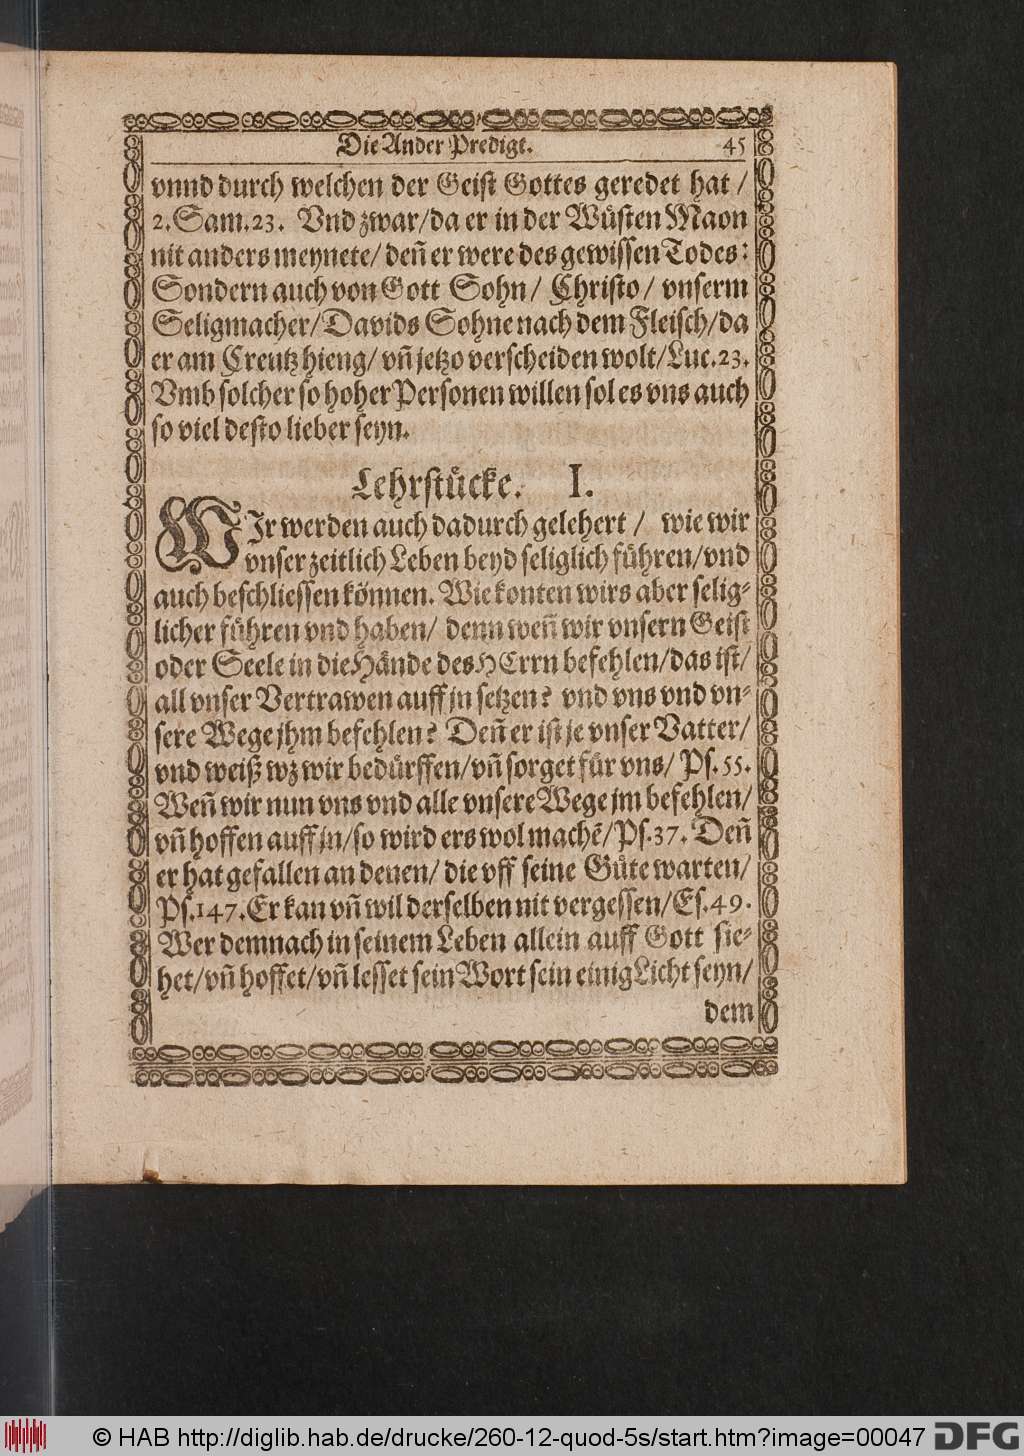 Die Ander Predigt. 45
vnnd durch welchen der Geist Gottes geredet hat /
2. Sam. 23. Vnd zwar / da er in der Wüsten Maon
nit anders meynete / deñ er were des gewissen Todes:
Sondern auch von Gott Sohn / Christo / vnserm
Seligmacher / Davids Sohne nach dem Fleisch / da
er am Creutz hieng / vñ jetzo verscheiden wolt / Luc. 23.
Vmb solcher so hoher Personen willen sol es vns auch
so viel desto lieber seyn.
Lehrstücke. I.
WIr werden auch dadurch gelehert / wie wir
vnser zeitlich Leben beyd seliglich führen / vnd
auch beschliessen können. Wie konten wirs aber selig-
licher führen vnd haben / denn weñ wir vnsern Geist
oder Seele in die Hände des HErrn befehlen / das ist /
all vnser Vertrawen auff jn setzen? vnd vns vnd vn-
sere Wege jhm befehlen? Deñ er ist je vnser Vatter /
vnd weiß wz wir bedürffen / vñ sorget für vns / Ps. 55.
Weñ wir nun vns vnd alle vnsere Wege jm befehlen /
vñ hoffen auff jn / so wird ers wol machẽ / Ps. 37. Deñ
er hat gefallen an denen / die vff seine Güte warten /
Ps. 147. Er kan vñ wil derselben nit vergessen / Es. 49.
Wer demnach in seinem Leben allein auff Gott sie-
het / vñ hoffet / vñ lesset sein Wort sein einig Licht seyn /
dem
© HAB http://diglib.hab.de/drucke/260-12-quod-5s/start.htm?image=00047 DFG